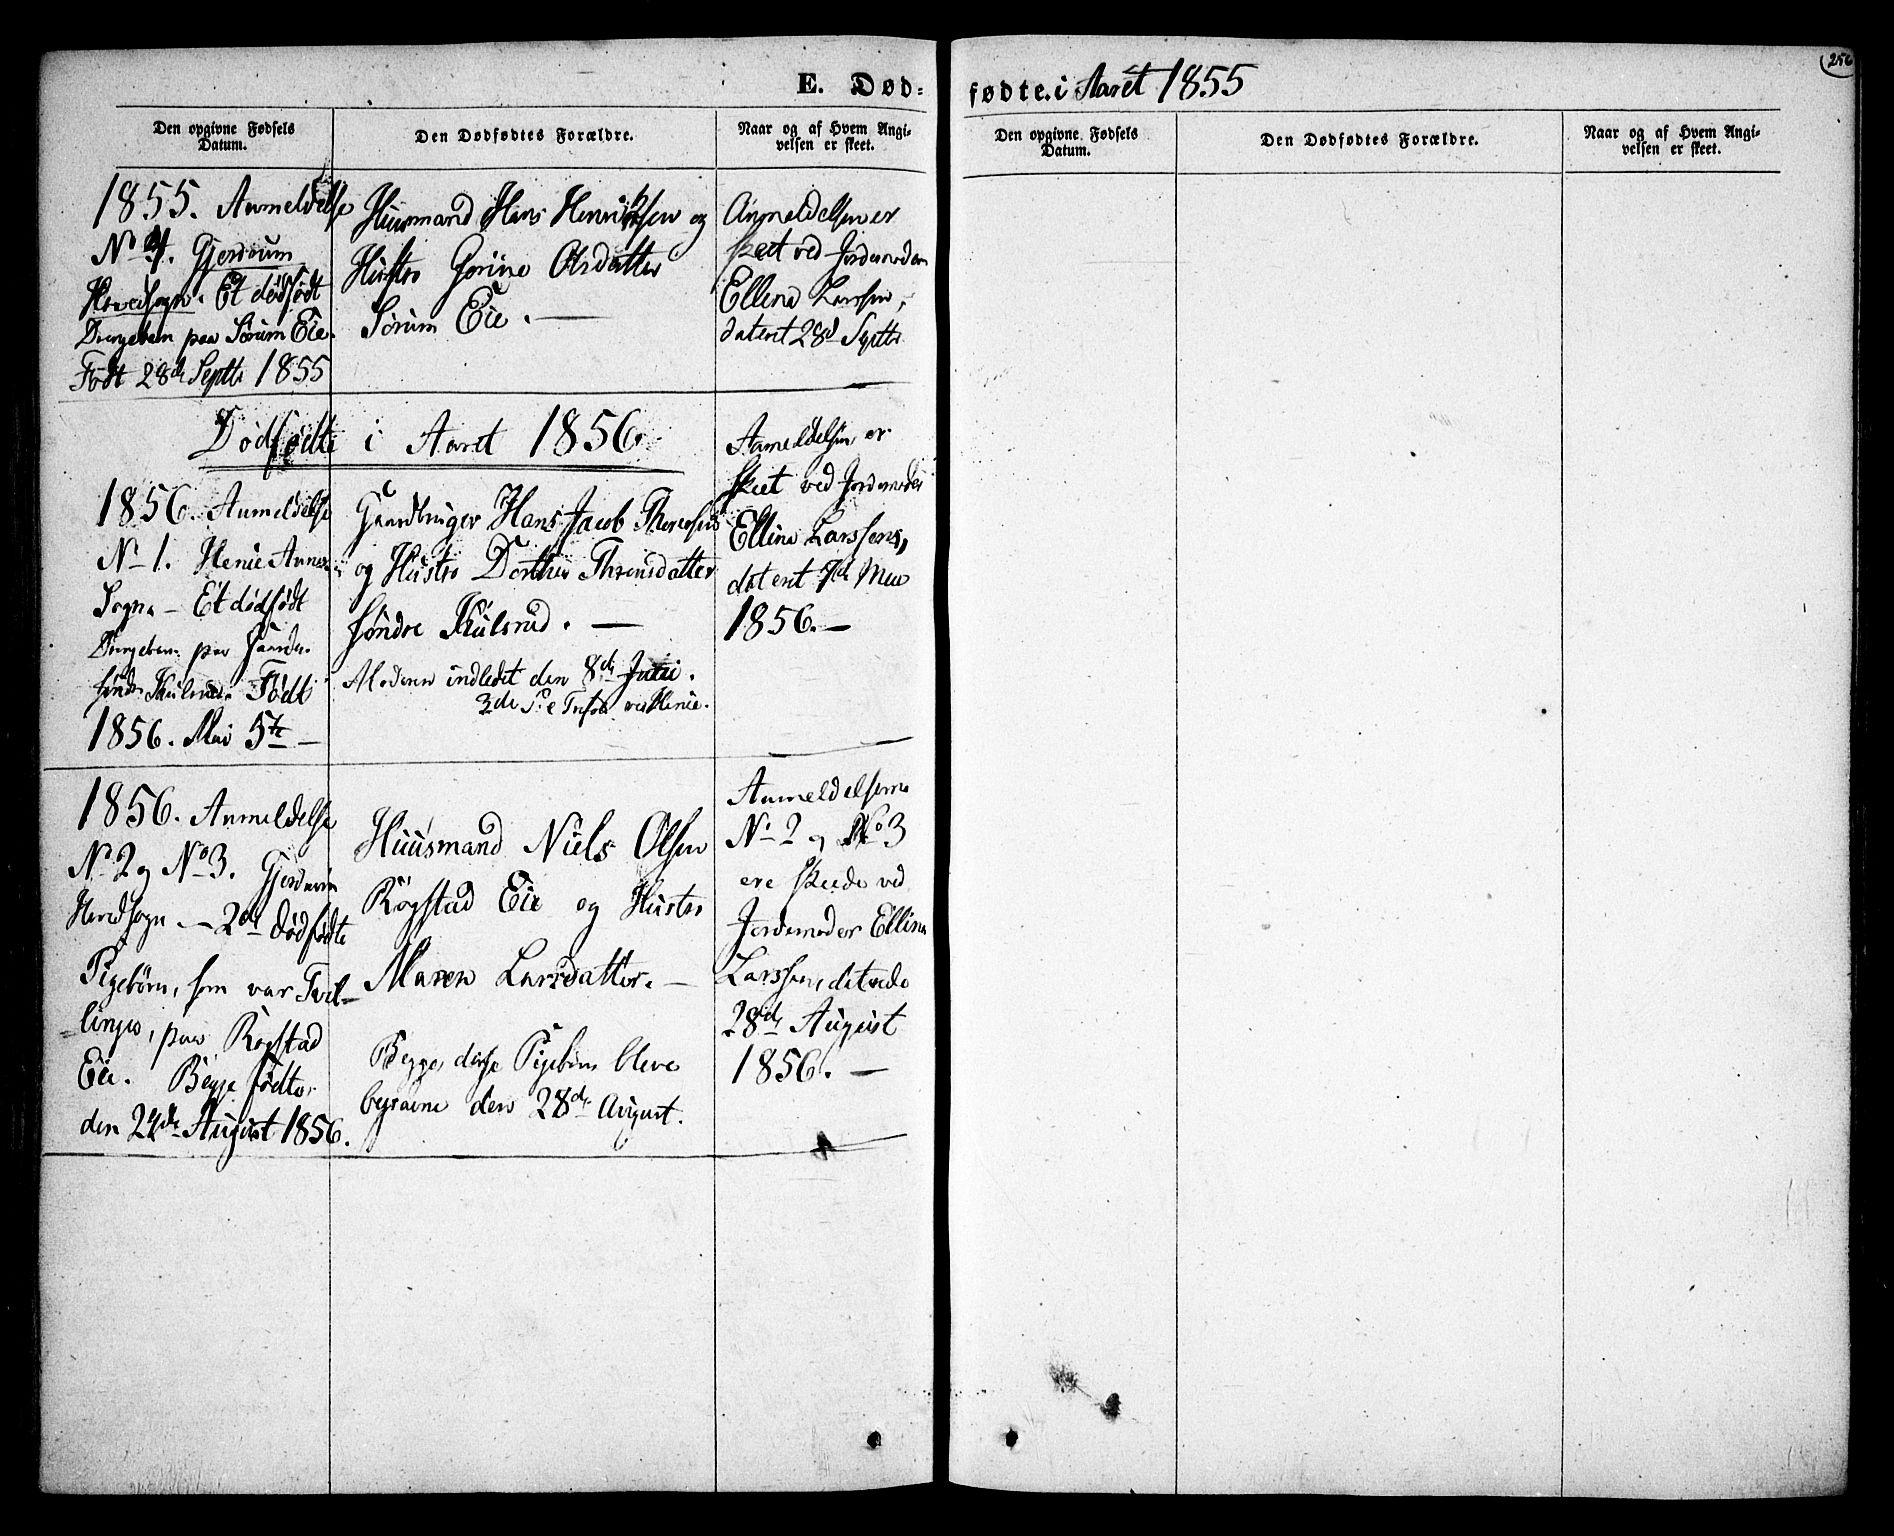 E. Død-
fødte. i Aaret 1855
256
Den opgivne Fødsels
Datum.
Den Dødfødtes Forældre.
Naar og af Hvem Angi-
velsen er skeet.
Den opgivne Fødsels
Datum.
Den Dødfødtes Forældre.
Naar og af Hvem Angi-
velsen er skeet.
1855. Anmeldelse
No 4. Gjerdrum
Hovedsogn. Et dødfødt
Drengebarn paa Sørum Eie.
Født 28de Septbr 1855
Huusmand Hans Henriksen og
Hustro Gorine Olsdatter
Sørum Eie. —
Anmeldelsen er
skeet ved Jordemoder
Elline Larssen,
dateret 28de Septbr
Dødfødte i Aaret 1856.
1856. Anmeldelse
No 1. Henie Annex
Sogn. — Et dødfødt
Drengebarn paa Gaarden
søndre Kulsrud. Født
1856. Mai 5te —
Gaardbruger Hans Jacob Thoresen
og Hustro Dorthea Thronsdatter
søndre Kulsrud. —
Moderen indledet den 8de Juni.
3de S. e Trefold. ved Henie.
Anmeldelsen er
skeet ved Jordemoder
Elline Larssen,
dateret 7de Mai
1856. —
1856. Anmeldelse
No 2 og No 3. Gjerdrum
Hovedsogn. — 2de dødfødte
Pigebørn, som var Tvil-
linger, paa Rogstad
Eie. Begge fødte
den 24de August 1856.
Huusmand Niels Olsen
Rogstad Eie og Hustro
Maren Larsdatter. —
Begge disse Pigebørn bleve
begravne den 28de August.
Anmeldelserne
No 2 og No 3
ere skeede ved
Jordemoder Elline
Larssen, daterede
28de August
1856. —